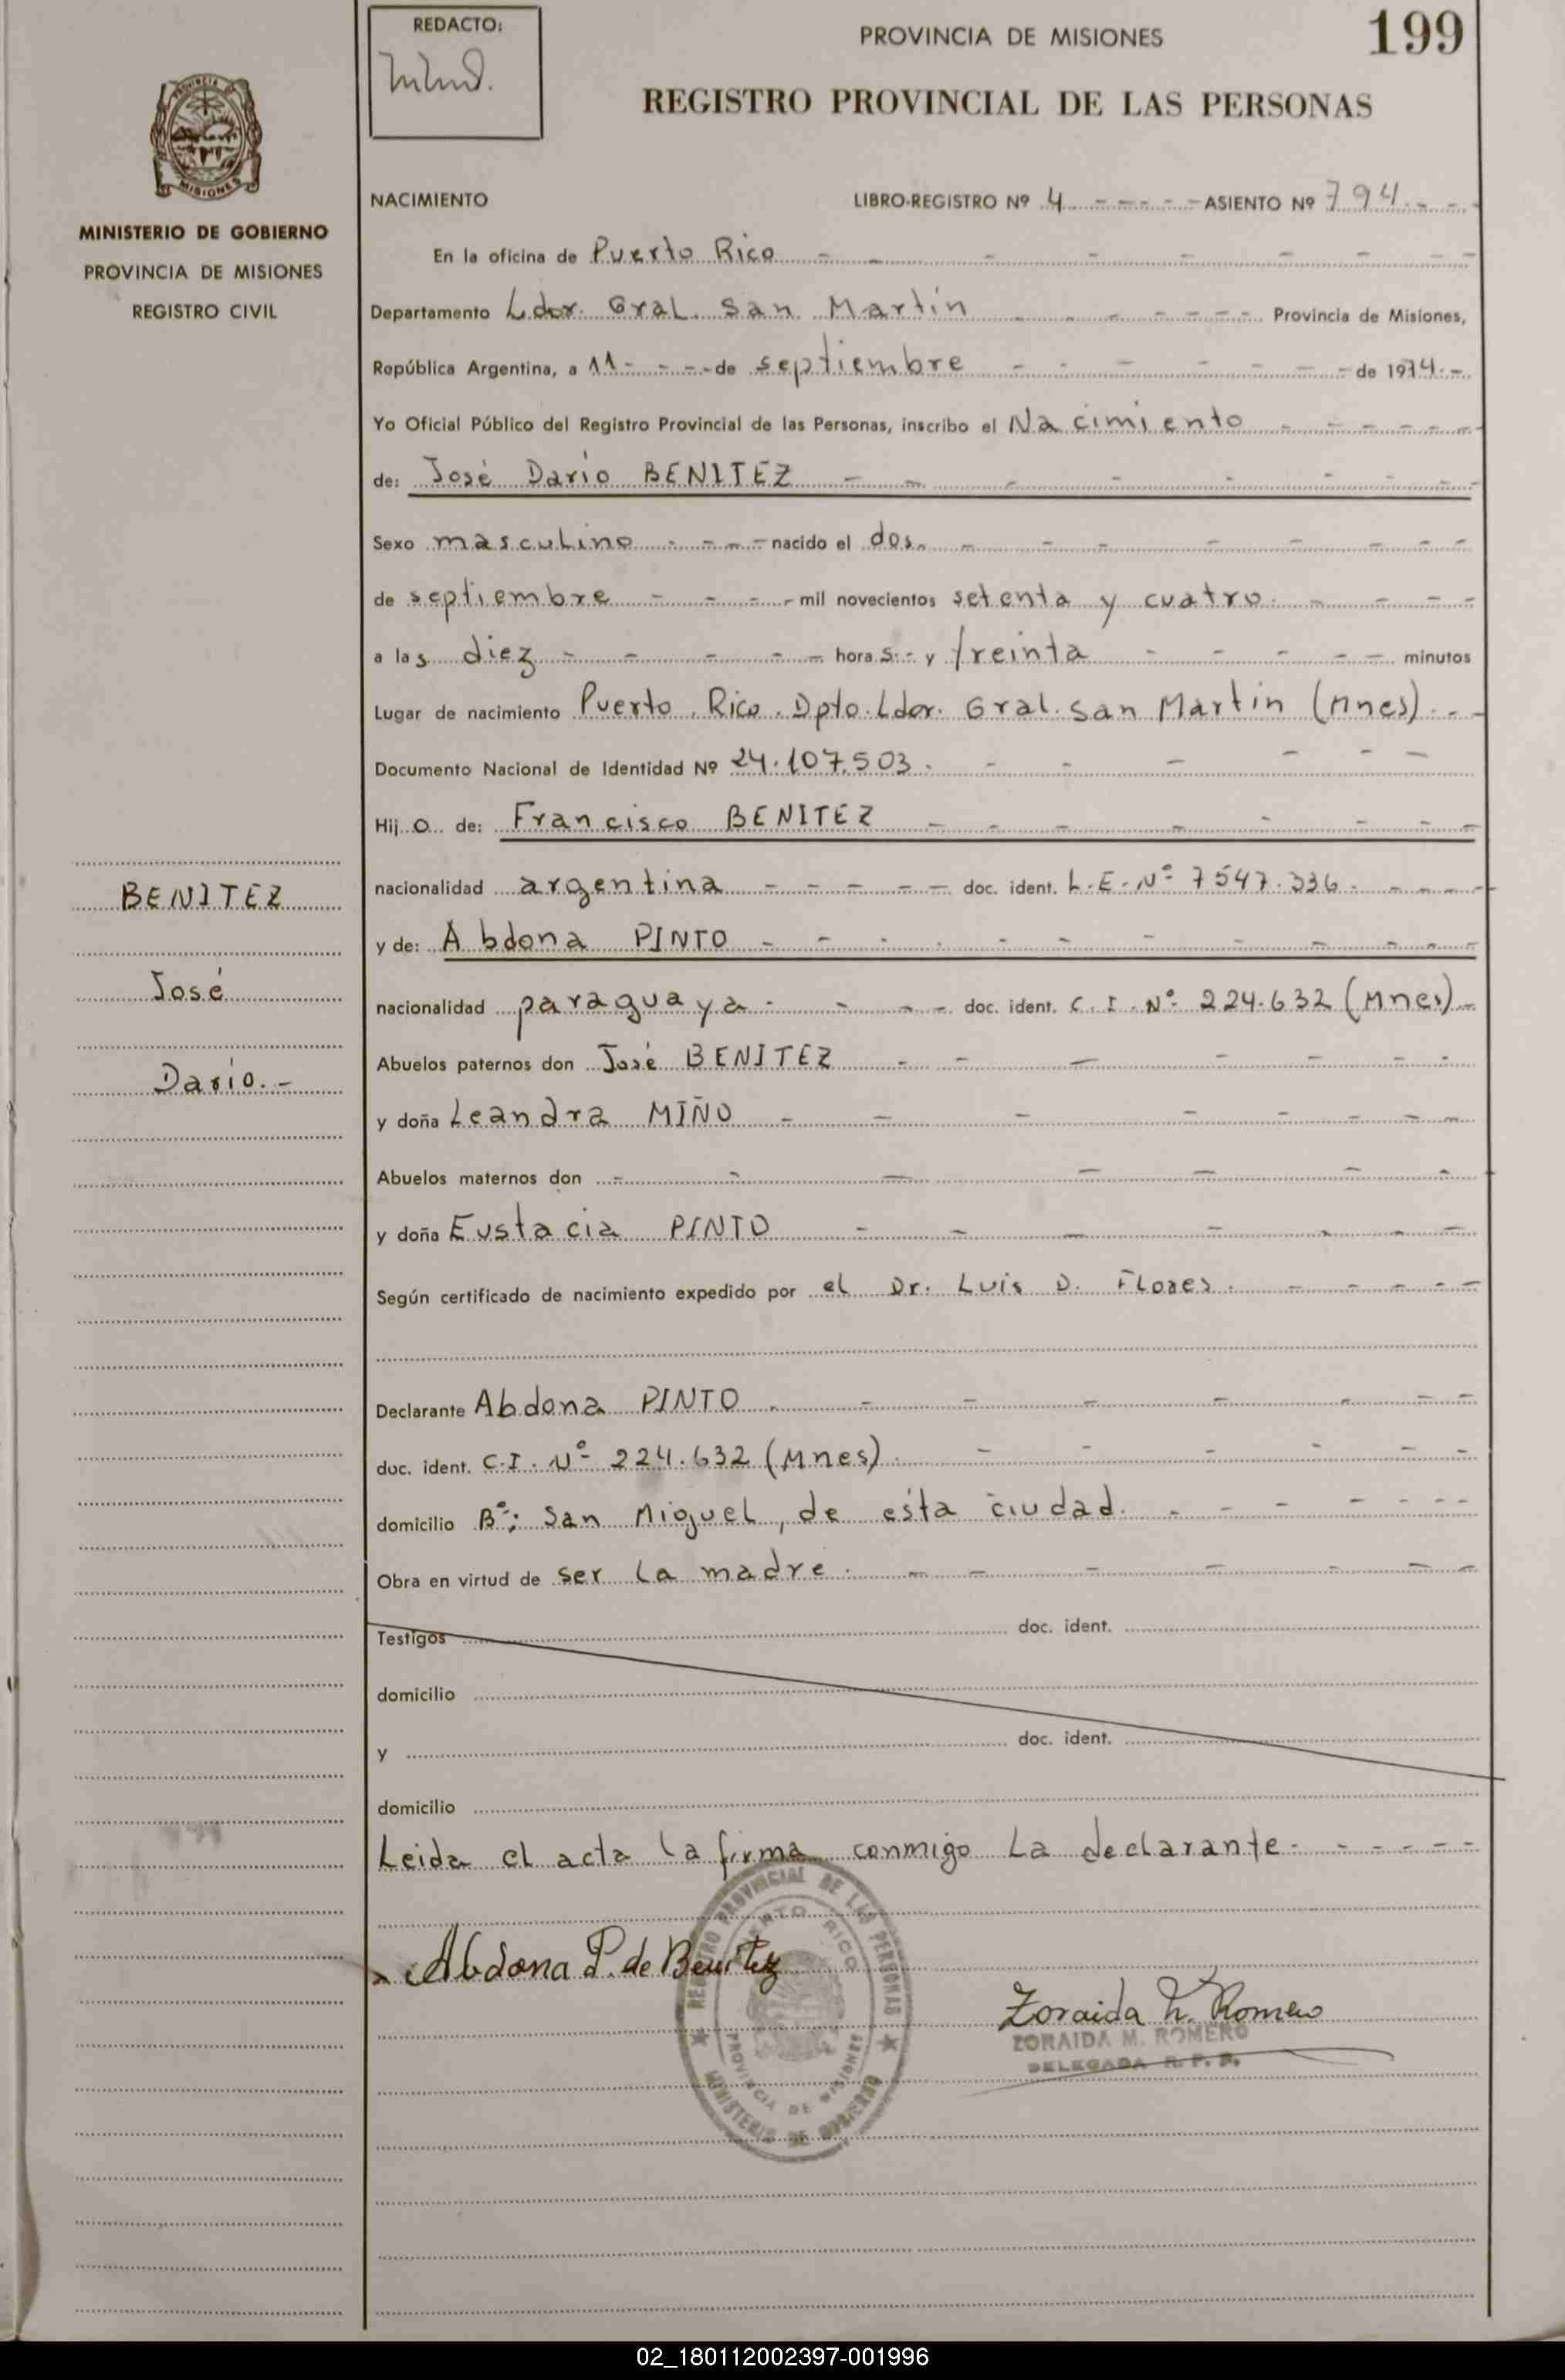 REDACTO:
PROVINCIA DE MISIONES
199
REGISTRO PROVINCIAL DE LAS PERSONAS
MISIONES
MINISTERIO DE GOBIERNO
PROVINCIA DE MISIONES
REGISTRO CIVIL
NACIMIENTO LIBRO-REGISTRO Nº 4 - - - - - ASIENTO Nº 794. - -
En la oficina de Puerto Rico - - - - - - - - -
Departamento Ldor. Gral. San Martín - - - - - - Provincia de Misiones,
República Argentina, a 11 - - - - de septiembre - - - - - - - de 1974.-
Yo Oficial Público del Registro Provincial de las Personas, inscribo el Nacimiento - - - - - -
de: José Darío BENITEZ - - - - - - - -
Sexo masculino - - - - nacido el dos. - - - - - - - -
de septiembre - - - - mil novecientos setenta y cuatro. - - - -
a las diez - - - - - horas.- y treinta - - - - - minutos
Lugar de nacimiento Puerto Rico. Dpto. Ldor. Gral. San Martín (Mnes). - -
Documento Nacional de Identidad Nº 24.107.503. - - - - - -
Hijo de: Francisco BENITEZ - - - - - - - -
nacionalidad argentina - - - - - doc. ident. L.E. Nº 7547.336. - - - -
BENITEZ
y de: Abdona PINTO - - - - - - - - - - -
José
nacionalidad paraguaya - - - - doc. ident. C.I. Nº 224.632 (Mnes) -
Abuelos paternos don José BENITEZ - - - - - - -
Darío.-
y doña Leandra MIÑO - - - - - - - -
Abuelos maternos don - - - - - - -
y doña Eustacia PINTO - - - - - - -
Según certificado de nacimiento expedido por el Dr. Luis D. Flores. - - - - -
Declarante Abdona PINTO. - - - - - - -
doc. ident. C.I. Nº 224.632 (Mnes). - - - - - -
domicilio Bº: San Miguel, de esta ciudad. - - - - - - -
Obra en virtud de ser la madre. - - - - - - -
Testigos doc. ident.
domicilio
y doc. ident.
domicilio
Leida el acta la firma conmigo la declarante. - - - - -
REGISTRO PROVINCIAL DE LAS PERSONAS
PUERTO RICO
PROVINCIA DE MISIONES
MINISTERIO DE GOBIERNO
x Abdona P. de Benitez
Zoraida M. Romero
ZORAIDA M. ROMERO
DELEGADA R. P. P.
02_180112002397-001996